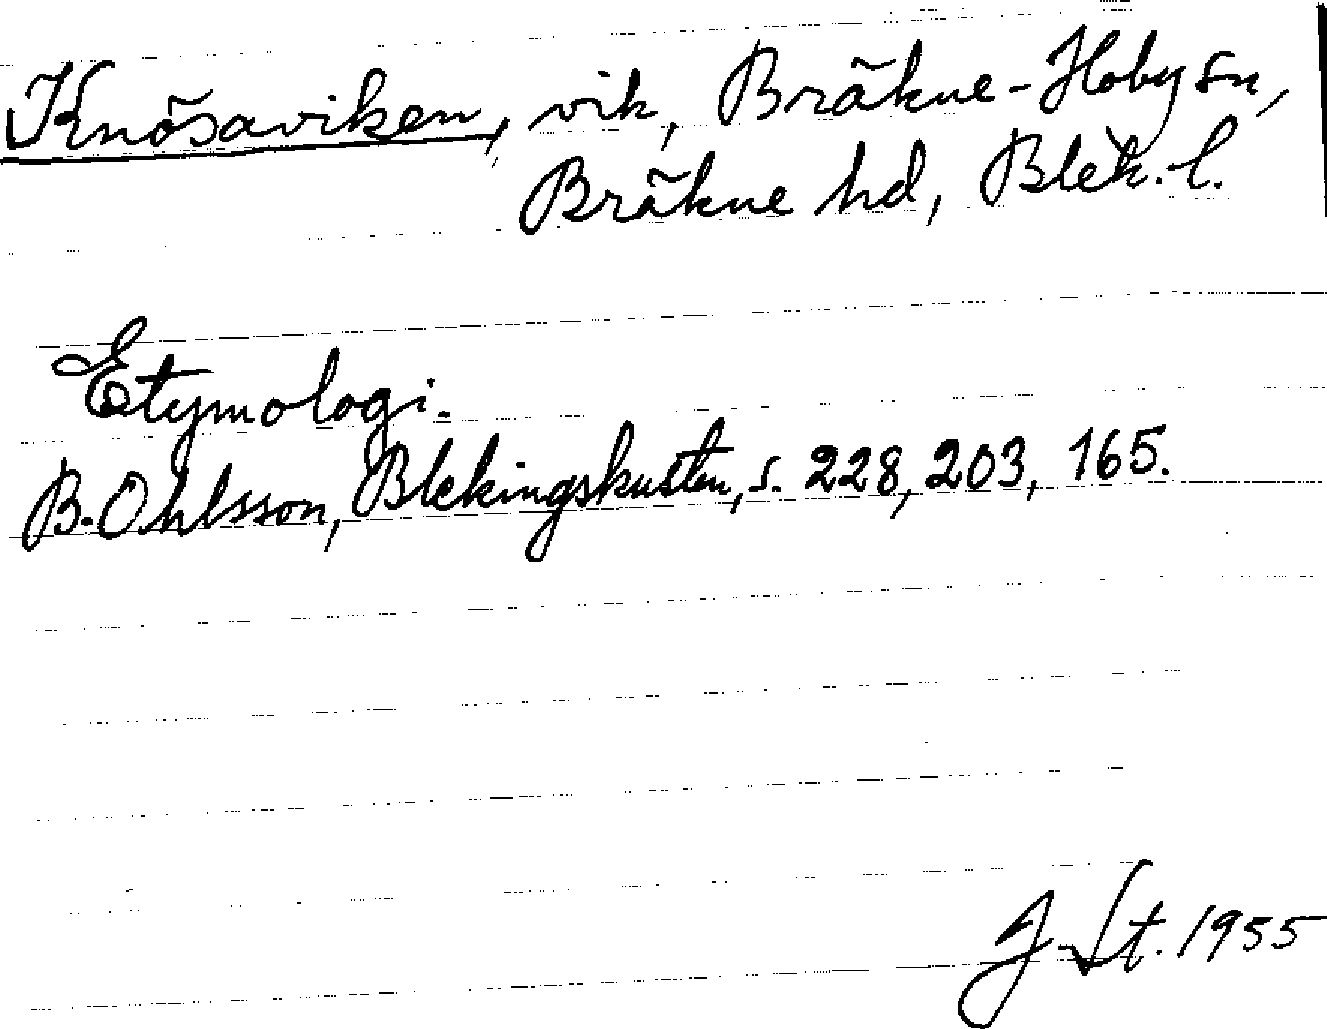 Knösaviken, vik, Bräkne-Hoby sn,
Bräkne hd, Blek. l.
Etymologi.
B. Ohlsson, Blekingskusten, s. 228, 203, 165.
J St. 1955